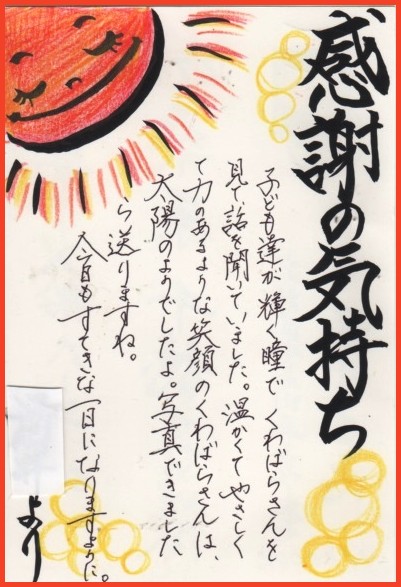 感謝の気持ち
子ども達が輝く瞳でくわばらさんを
見て話を聞いていました。温かくてやさしく
て力のあるような笑顔のくわばらさんは、
太陽のようでしたよ。写真できました
ら送りますね。
今日もすてきな一日になりますように。
より